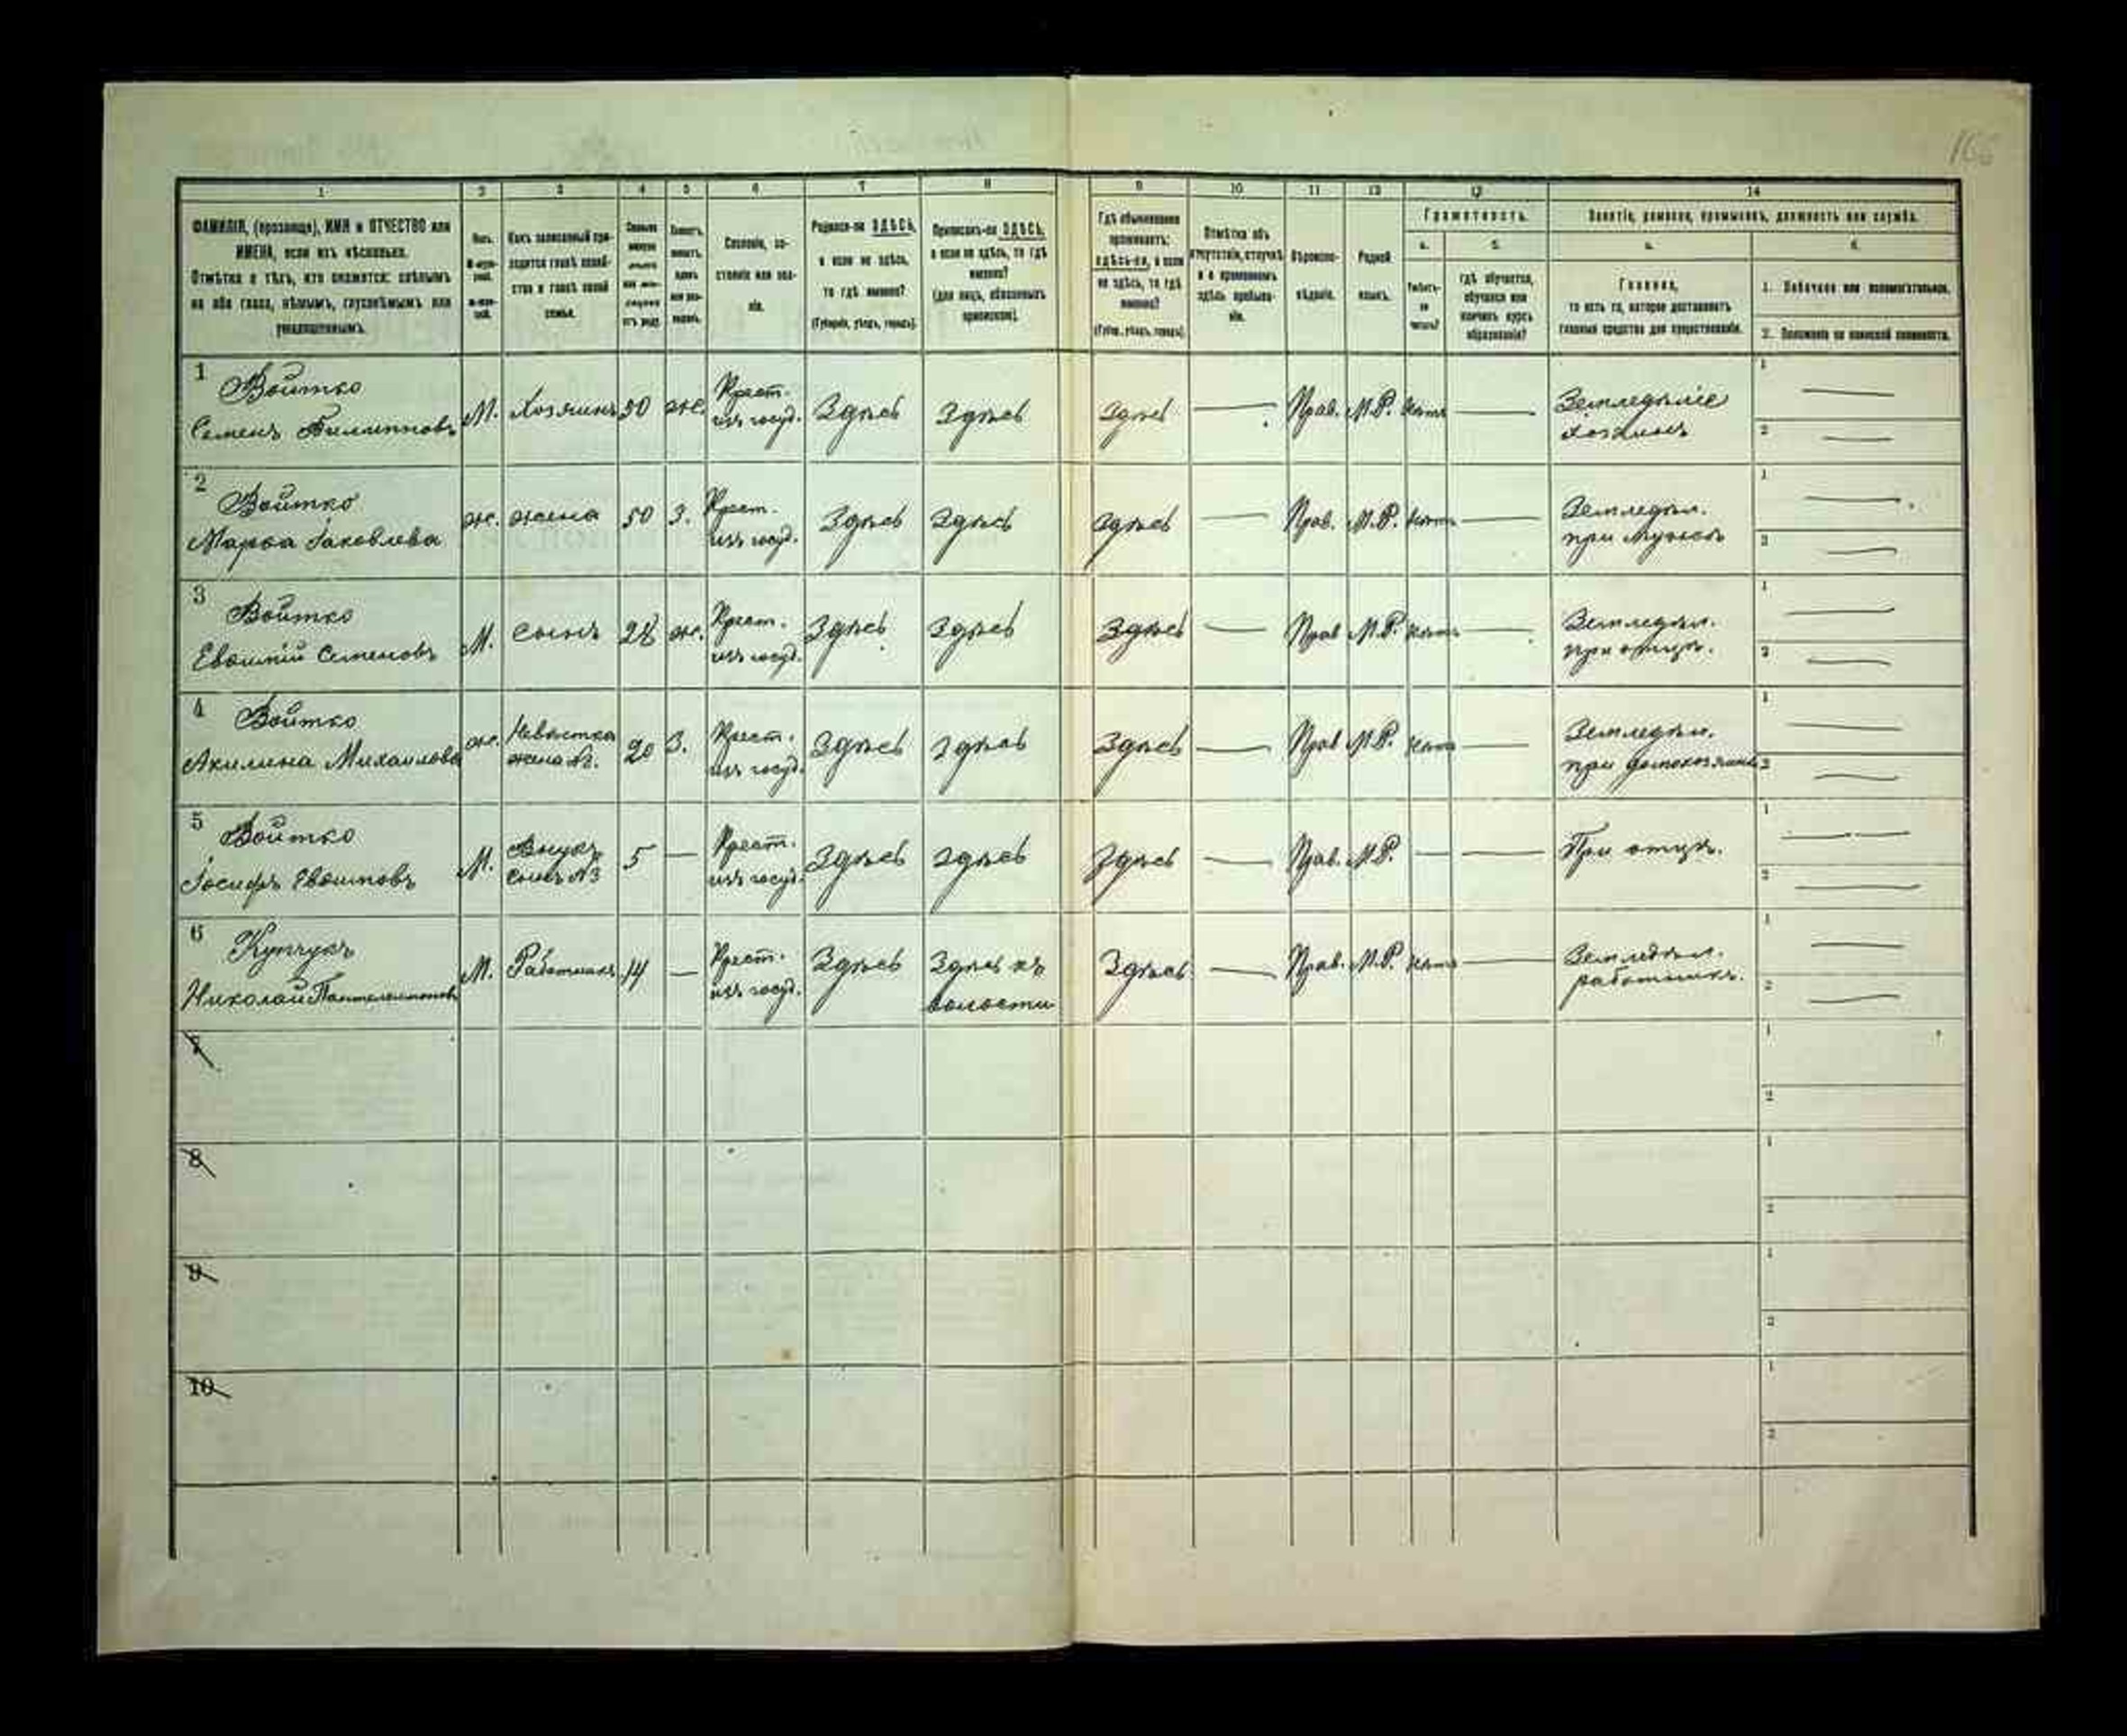 166
1 2 3 4 5 6 7 8 9 10 11 12 13 14
ФАМИЛІЯ, (прозвище), ИМЯ и ОТЧЕСТВО или
ИМЕНА, если ихъ нѣсколько.
Отмѣтка о тѣхъ, кто окажется: слѣпымъ
на оба глаза, нѣмымъ, глухонѣмымъ или
умалишеннымъ.
Полъ.
Какъ записанный при-
ходится главѣ хозяй-
ства и главѣ своей
семьи.
Сословіе, со-
стояніе или зва-
ніе.
Родился-ли ЗДѢСЬ,
а если не здѣсь,
то гдѣ именно?
(Губернія, уѣздъ, городъ).
Приписанъ-ли ЗДѢСЬ,
а если не здѣсь, то гдѣ
именно?
(для лицъ, обязанныхъ
припискою).
Гдѣ обыкновенно
проживаетъ:
здѣсь-ли, а если
не здѣсь, то гдѣ
именно?
(Губер., уѣздъ, городъ).
Отмѣтка объ
отсутствіи, отлучкѣ
и о временномъ
здѣсь пребыва-
ніи.
Вѣроиспо-
вѣданіе.
Родной
языкъ.
Грамотность.
а. б.
Умѣетъ-
ли
читать?
гдѣ обучается,
обучался или
кончилъ курсъ
образованія?
Занятіе, ремесло, промыселъ, должность или служба.
а. б.
Главное,
то есть то, которое доставляетъ
главныя средства для существованія.
1. Побочное или вспомогательное.
2. Положеніе по воинской повинности.
1 Войтко
Семенъ Филипповъ М. Хозяинъ 50 ж. Крест. изъ госуд. Здѣсь Здѣсь Здѣсь — Прав. М.Р. Нѣтъ — Земледѣліе хозяинъ 1 — 2 —
2 Войтко
Марѳа Іаковлева ж. жена 50 З. Крест. изъ госуд. Здѣсь Здѣсь Здѣсь — Прав. М.Р. Нѣтъ — Земледѣл. при мужѣ 1 — 2 —
3 Войтко
Евѳимій Семеновъ М. Сынъ 28 ж. Крест. изъ госуд. Здѣсь Здѣсь Здѣсь — Прав М.Р. Нѣтъ — Земледѣл. при отцѣ. 1 — 2 —
4 Войтко
Акилина Михаилова ж. Невѣстка жена 20 З. Крест. изъ госуд. Здѣсь Здѣсь Здѣсь — Прав М.Р. Нѣтъ — Земледѣл. при домохозяинѣ 1 — 2 —
5 Войтко
Іосифъ Евѳимовъ М. Внукъ сынъ №3 5 — Крест. изъ госуд. Здѣсь Здѣсь Здѣсь — Прав. М.Р. — — При отцѣ. 1 — 2 —
6 Купчукъ
Николай Пантелеимоновъ М. Работникъ 14 — Крест. изъ госуд. Здѣсь Здѣсь къ волости Здѣсь — Прав. М.Р. Нѣтъ — Земледѣл. работникъ. 1 — 2 —
7 1 2
8 1 2
9 1 2
10 1 2